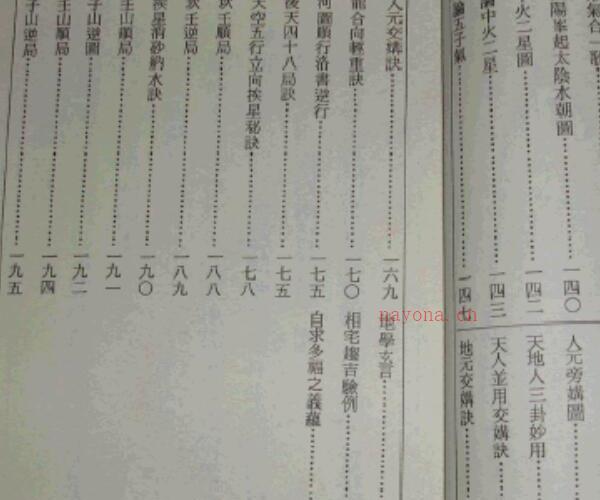 氣合一
陽峯起太陰水朝圖
一四〇
火二星圖
一四二
論中火二星
一四三
論五子氣
一四七
人元旁媾圖
天地人三卦妙用
天人並用交媾訣
地元交媾訣
人元交媾訣
一六九
龍合向輕重訣
一七〇
河圖順行洛書逆行
一七五
後天四十八局訣
一七五
天空五行立向挨星秘訣
一七八
壬順局
一八八
壬逆局
一八九
挨星消砂納水訣
一九〇
壬山順局
一九一
子山逆圖
一九二
壬山順局
一九四
子山逆局
一九五
地學玄言
相宅趨吉驗例
自求多福之義蘊
nayona.cn